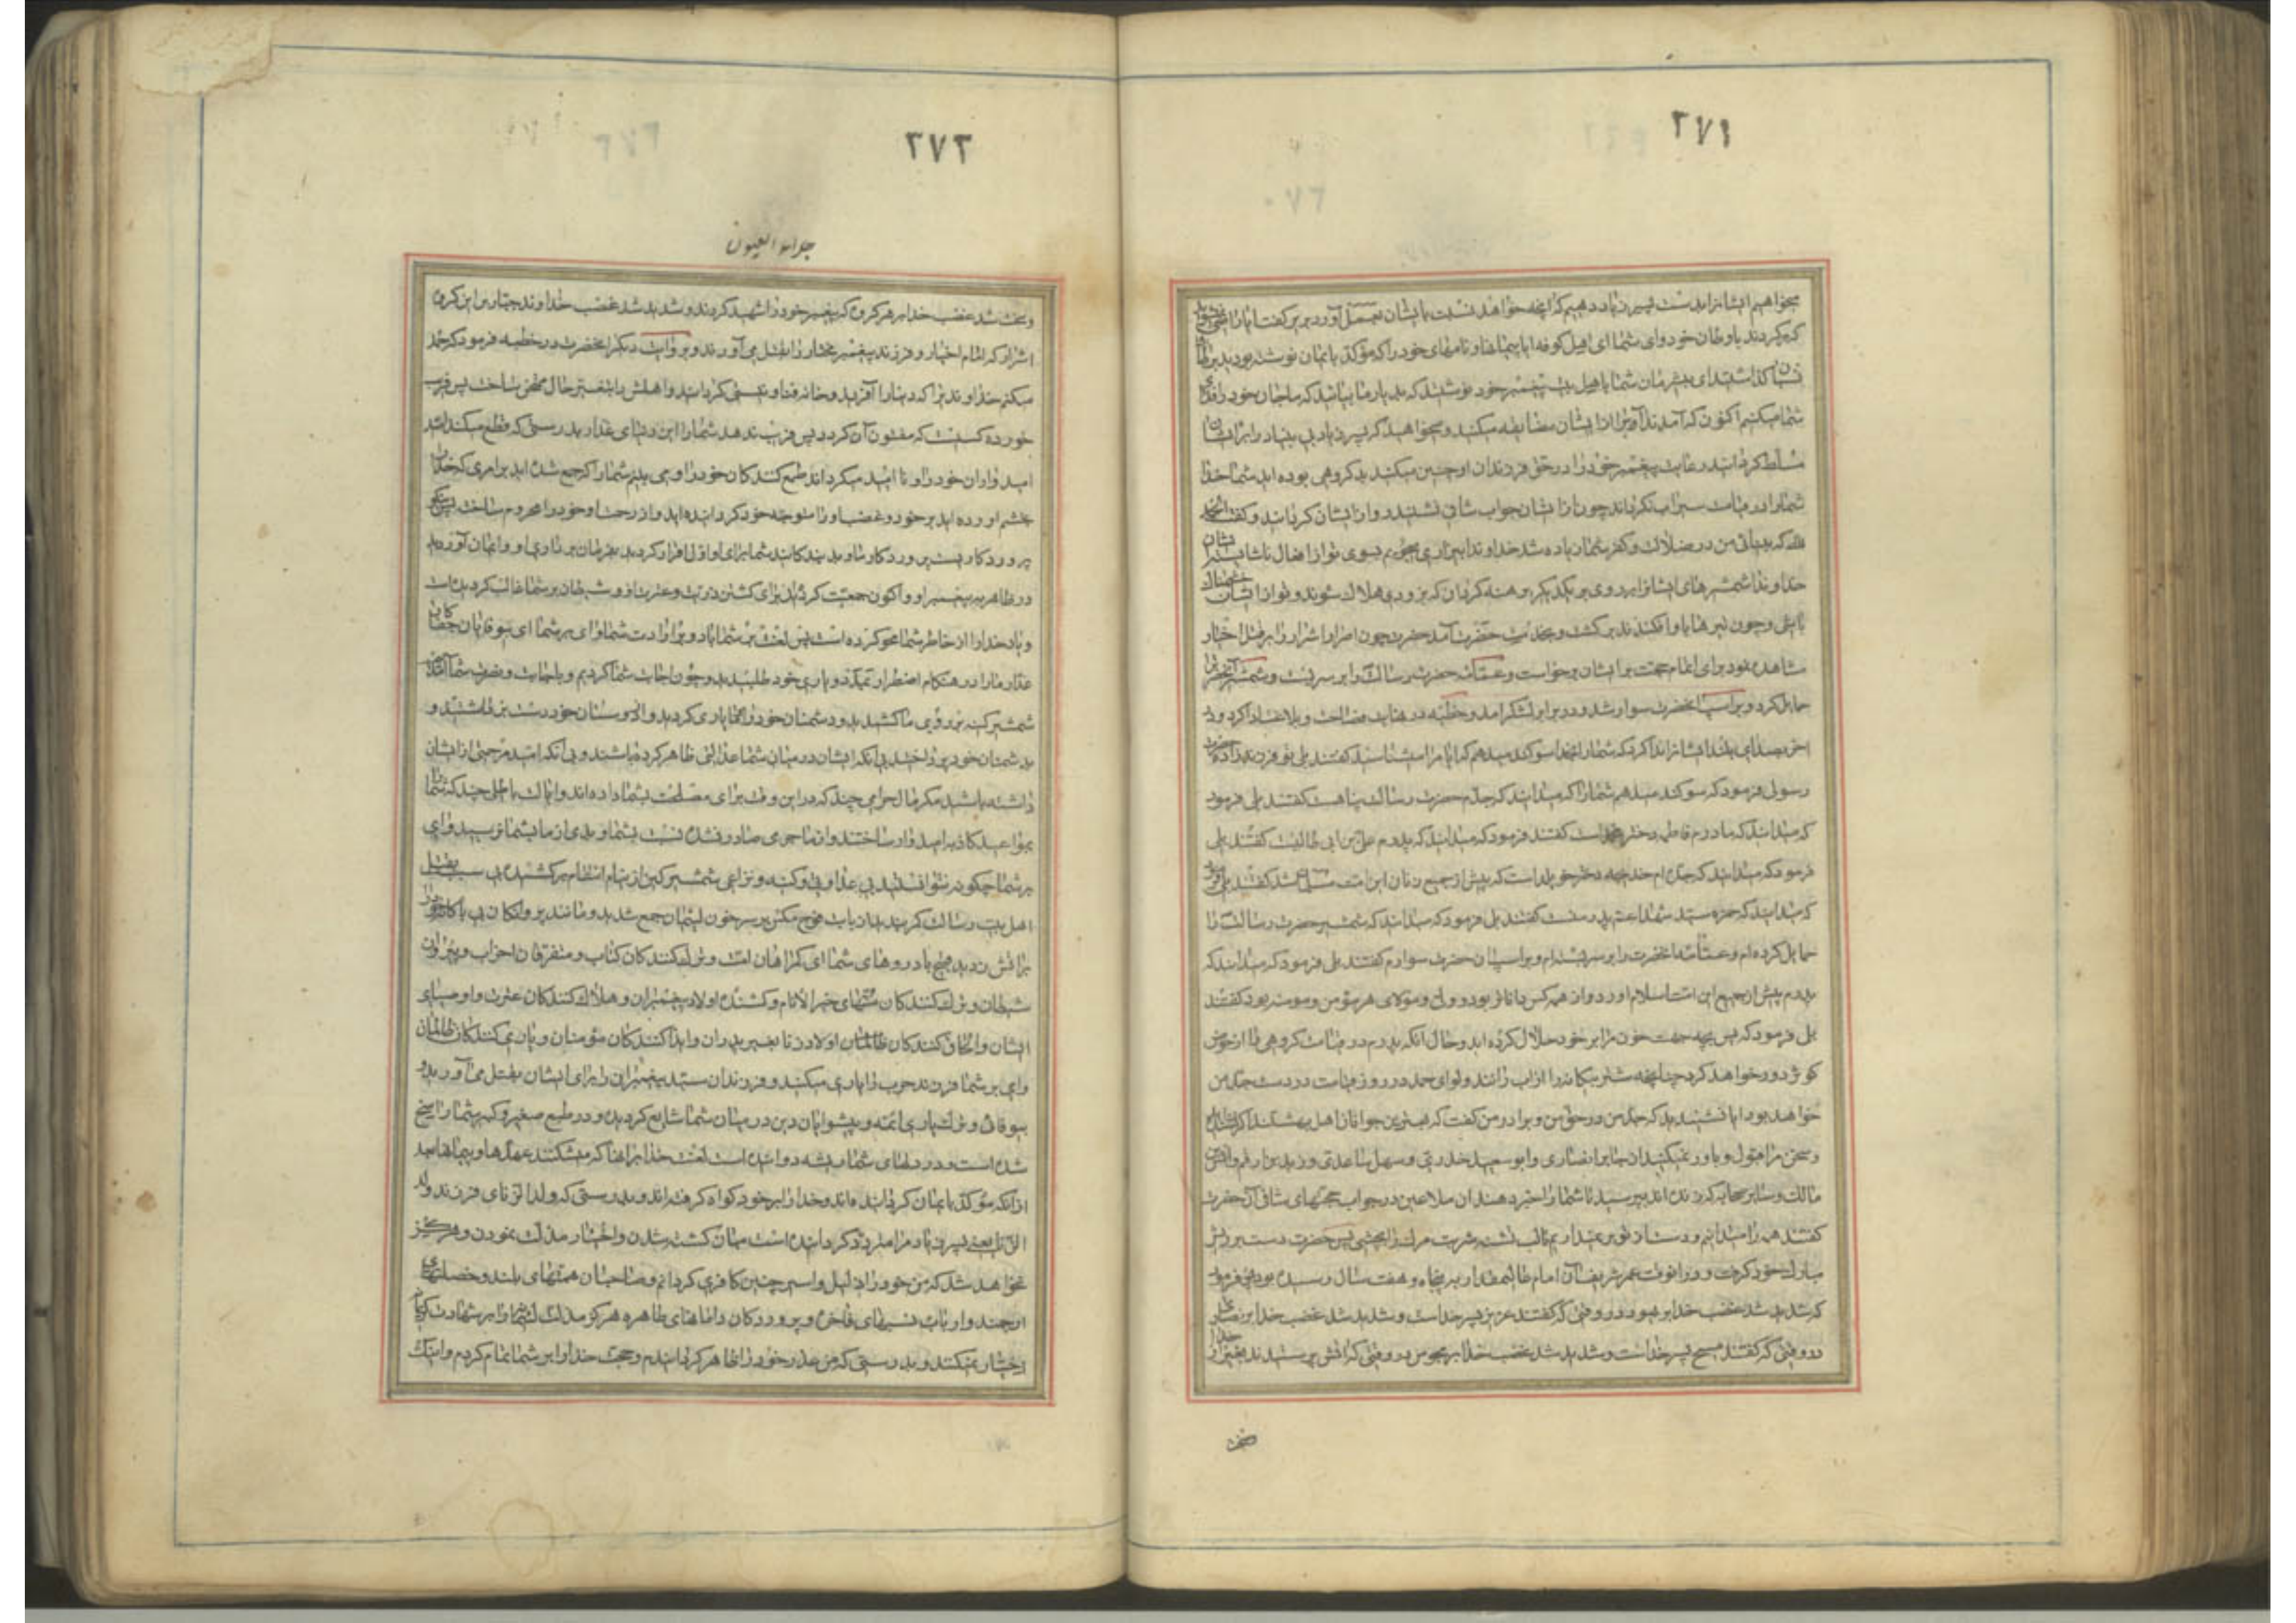 ٢٧١
میخواهیم ایشانرا بدست پسر زیاد دهیم که آنچه خواهد نسبت بایشان بعمل آورد بریر گفت آیا راضی
که برگردند باوطان خود وای شما ای اهل کوفه آیا پیمانها و نامهای خود را که مؤکد بایمان نوشته بودید
گذاشتید ای بیشرمان شما باهل بیت پیغمبر خود نوشتید که بدیار ما بیائید که ما جان خود را فدای
شما میکنیم اکنون که آمدند آب را از ایشان مضایقه میکنید و میخواهید که پسر زیاد بی بنیاد را بر ایشان
مسلط گردانید رعایت پیغمبر خود را در حق فرزندان او چنین میکنید بد گروهی بوده اید شما خدا
شما را در قیامت سیراب نگرداند چون از ایشان جواب شافی نشنید رو از ایشان گردانید و گفت الحمد
لله که بینائی من در ضلالت و کفر شما زیاده شد خداوندا بیزاری میجویم بسوی تو از افعال ناشایسته ایشان
خداوندا شمشیرهای ایشانرا بر روی یکدیگر برهنه گردان که بزودی هلاک شوند و تو از ایشان خشمناک
باشی و چون تیرها باو افکندند برگشت و بخدمت حضرت آمد حضرت چون اصرار اشرار را بر قتل اخیار
مشاهده نمود برای اتمام حجت بر ایشان برخواست و عمامه حضرت رسالت را بر سر بست و شمشیر آنحضرترا
حمایل کرد و بر اسب آنحضرت سوار شد و در برابر لشکر آمد و خطبه در نهایت فصاحت و بلاغت ادا کرد و در
آخر بصدای بلند ایشانرا ندا کرد که شما را بخدا سوگند میدهم که آیا مرا میشناسید گفتند بلی تو فرزند زاده حضرت
رسولی فرمود که سوگند میدهم شما را که میدانید که جدم حضرت رسالت پناهست گفتند بلی فرمود
که میدانید که مادرم فاطمه دختر محمد است گفتند فرمود که میدانید که پدرم علی بن ابی طالبست گفتند بلی
فرمود که میدانید که جده ام خدیجه دختر خویلد است که پیش از جمیع زنان این امت مسلمان شد گفتند بلی فرمود
که میدانید که حمزه سید شهدا عم پدر منست گفتند بلی فرمود که میدانید که شمشیر حضرت رسالت را
حمایل کرده ام و عمامه آنحضرت را بر سر بسته ام و بر اسب آن حضرت سوارم گفتند بلی فرمود که میدانید که
پدرم پیش از جمیع این امت اسلام آورد و از همه کس داناتر بود و ولی و مولای هر مؤمن و مومنه بود گفتند
بلی فرمود که پس بچه جهت خون مرا بر خود حلال کرده اید و حال آنکه پدرم در قیامت گروهی را از حوض
کوثر دور خواهد کرد چنانچه شتر بیگانه را از آب رانند و لوای حمد در روز قیامت در دست جد من
خواهد بود آیا نشنیدید که جد من در حق من و برادر من گفت که بهترین جوانان اهل بهشتند اگر
سخن مرا قبول و باور نمیکنید از جابر انصاری و ابو سعید خدری و سهل ساعدی و زید بن ارقم و انس
مالک و سایر صحابه که زنده اند بپرسید تا شما را خبر دهند آن ملاعین در جواب حجتهای شافی آن حضرت
گفتند همه را میدانیم و دست از تو بر نمیداریم تا لب تشنه شربت مرگ را بچشی پس حضرت دست بر ریش
مبارک خود گرفت و در آنوقت عمر شریف آن امام عالیمقدار به پنجاه و هفت سال رسیده بود پس فرمود
که شدید شد غضب خدا بر یهود در وقتی که گفتند عزیر پسر خداست و شدید شد غضب خدا بر نصاری
در وقتی که گفتند مسیح پسر خداست و شدید شد غضب خدا بر مجوس در وقتی که آتش پرستیدند بغیر از خدا
سخت
٢٧٢
جلاء العیون
و سخت شد غضب خدا بر هر گروه که پیغمبر خود را شهید کردند و شدید شد غضب خداوند جبار بر این گروه
اشرار که امام اخیار و فرزند پیغمبر مختار را بقتل می آورند و بروایت دیگر آنحضرت در خطبه فرمود که حمد
میکنم خداوندیرا که دنیا را آفرید و خانه فنا و نیستی گردانید و اهلش را بتغییر حال ممتحن ساخت پس فریب
خورده کسیست که مفتون آن گردد پس فریب ندهد شما را این دنیای غدار بدرستی که قطع میکند امید
امیدواران خود را و نا امید میگرداند طمع کنندکان خود را و می بینم شما را که جمع شده اید برامری که خدا را
بخشم آورده اید بر خود و غضب او را متوجه خود گردانیده اید و از رحمت او خود را محروم ساخت پس نیکو
پروردگاریست پروردگار ما و بد بندکانید شما برای او اول اقرار کردید بفرمان برداری او و ایمان آوردید
در ظاهر به پیغمبر او و اکنون جمعیت کرده اید برای کشتن ذریت و عترت او و شیطان بر شما غالب گردیده است
و یاد خدا را از خاطر شما محو کرده است پس لعنت بر شما باد و بر ارادت شما وای بر شما ای بیوفایان جفاکار
غدار ما را در هنگام اضطرار بمدد و یاری خود طلبیدید و چون اجابت شما کردیم و بهدایت و نصرت شما آمدیم
شمشیر کینه بر روی ما کشیدید و دشمنان خود را بر ما یاری کردید و از دوستان خود دست برداشتید و
بدشمنان خود پرداختید بی آنکه ایشان در میان شما عدالتی ظاهر کرده باشند و بی آنکه امید مرحمتی از ایشان
داشته باشید مگر مال حرامی چند که در این وقت برای مصلحت بشما داده اند و امید باطلی چند که شما را
بمواعید کاذبه امیدوار ساختند و از ما جرمی صادر نشده نسبت بشما و بدی از ما بشما نرسیده وای
بر شما چگونه نتوانستید بی عداوتی و کینه و نزاعی شمشیر کین از نیام انتقام برکشیدید بی سبب بقتل
اهل بیت رسالت کمر بستید
شیطان و ترک کنندکان سنتهای خیر الانام و کشنده اولاد پیغمبران و هلاک کنندکان عترت و اوصیای
ایشان و الحاق کنندکان اولاد زنا بغیر پدران و ایذا کنندکان مؤمنان و یاری کنندکان ظالمان
وای بر شما فرزند حرب را یاری میکنید و فرزندان سید پیغمبران را برای ایشان بقتل می آورید
بیوفائی و ترک یاری ائمه و پیشوایان دین در میان شما شایع گردیده و در طبع صغیر و کبیر شما راسخ
شده است و در دلهای شما ریشه دوانیده است لعنت خدا بر آنها که میشکنند عهدها و پیمانها بعد
از آنکه مؤکد بایمان گردانیده اند و خدا را بر خود گواه گرفته اند و بدرستی که ولد الزنای فرزند ولد
الزنا یعنی پسر زیاد مرا متردد گردانیده است میان کشته شدن و اختیار مذلت نمودن و هرگز
نخواهد شد که من خود را ذلیل و اسیر چنین کافری گردانم و صاحبان همتهای بلند و خصلتهای
ارجمند و ارباب نسبهای فاخره و پروردکان دامانهای طاهره هرگز مذلت را بر شهادت
اختیار نمیکنند و بدرستی که من عذر خود را ظاهر گردانیدم و حجت خدا را بر شما تمام کردم و اینک